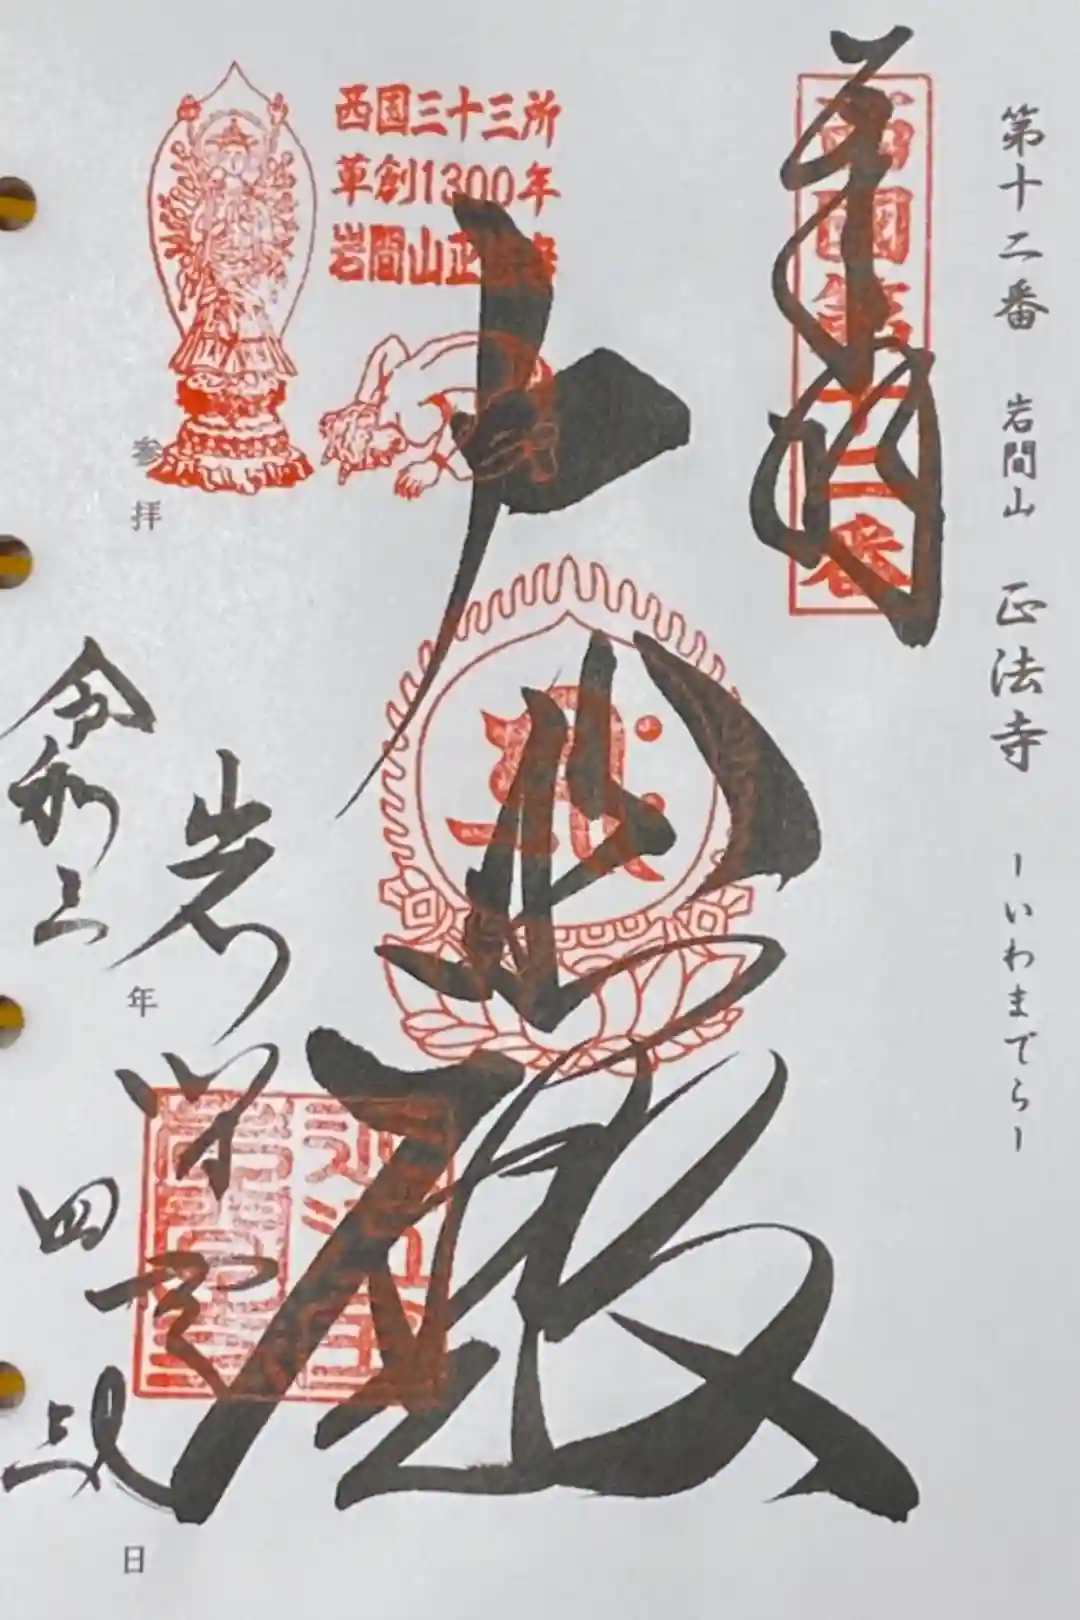 第十二番 岩間山 正法寺 ーいわまでらー
奉拝
西國第十二番
西国三十三所
草創1300年
岩間山正法寺
大悲殿
岩
参拝
令和三年
四
日